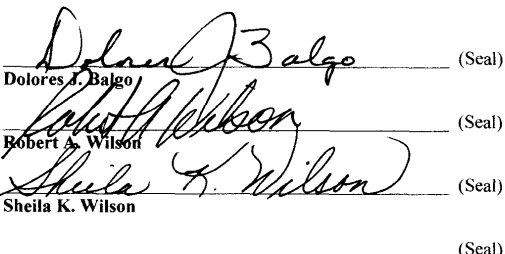 Dolores J. Balgo (Seal)
Dolores J. Balgo
Robert A Wilson (Seal)
Robert A. Wilson
Sheila K. Wilson (Seal)
Sheila K. Wilson
(Seal)